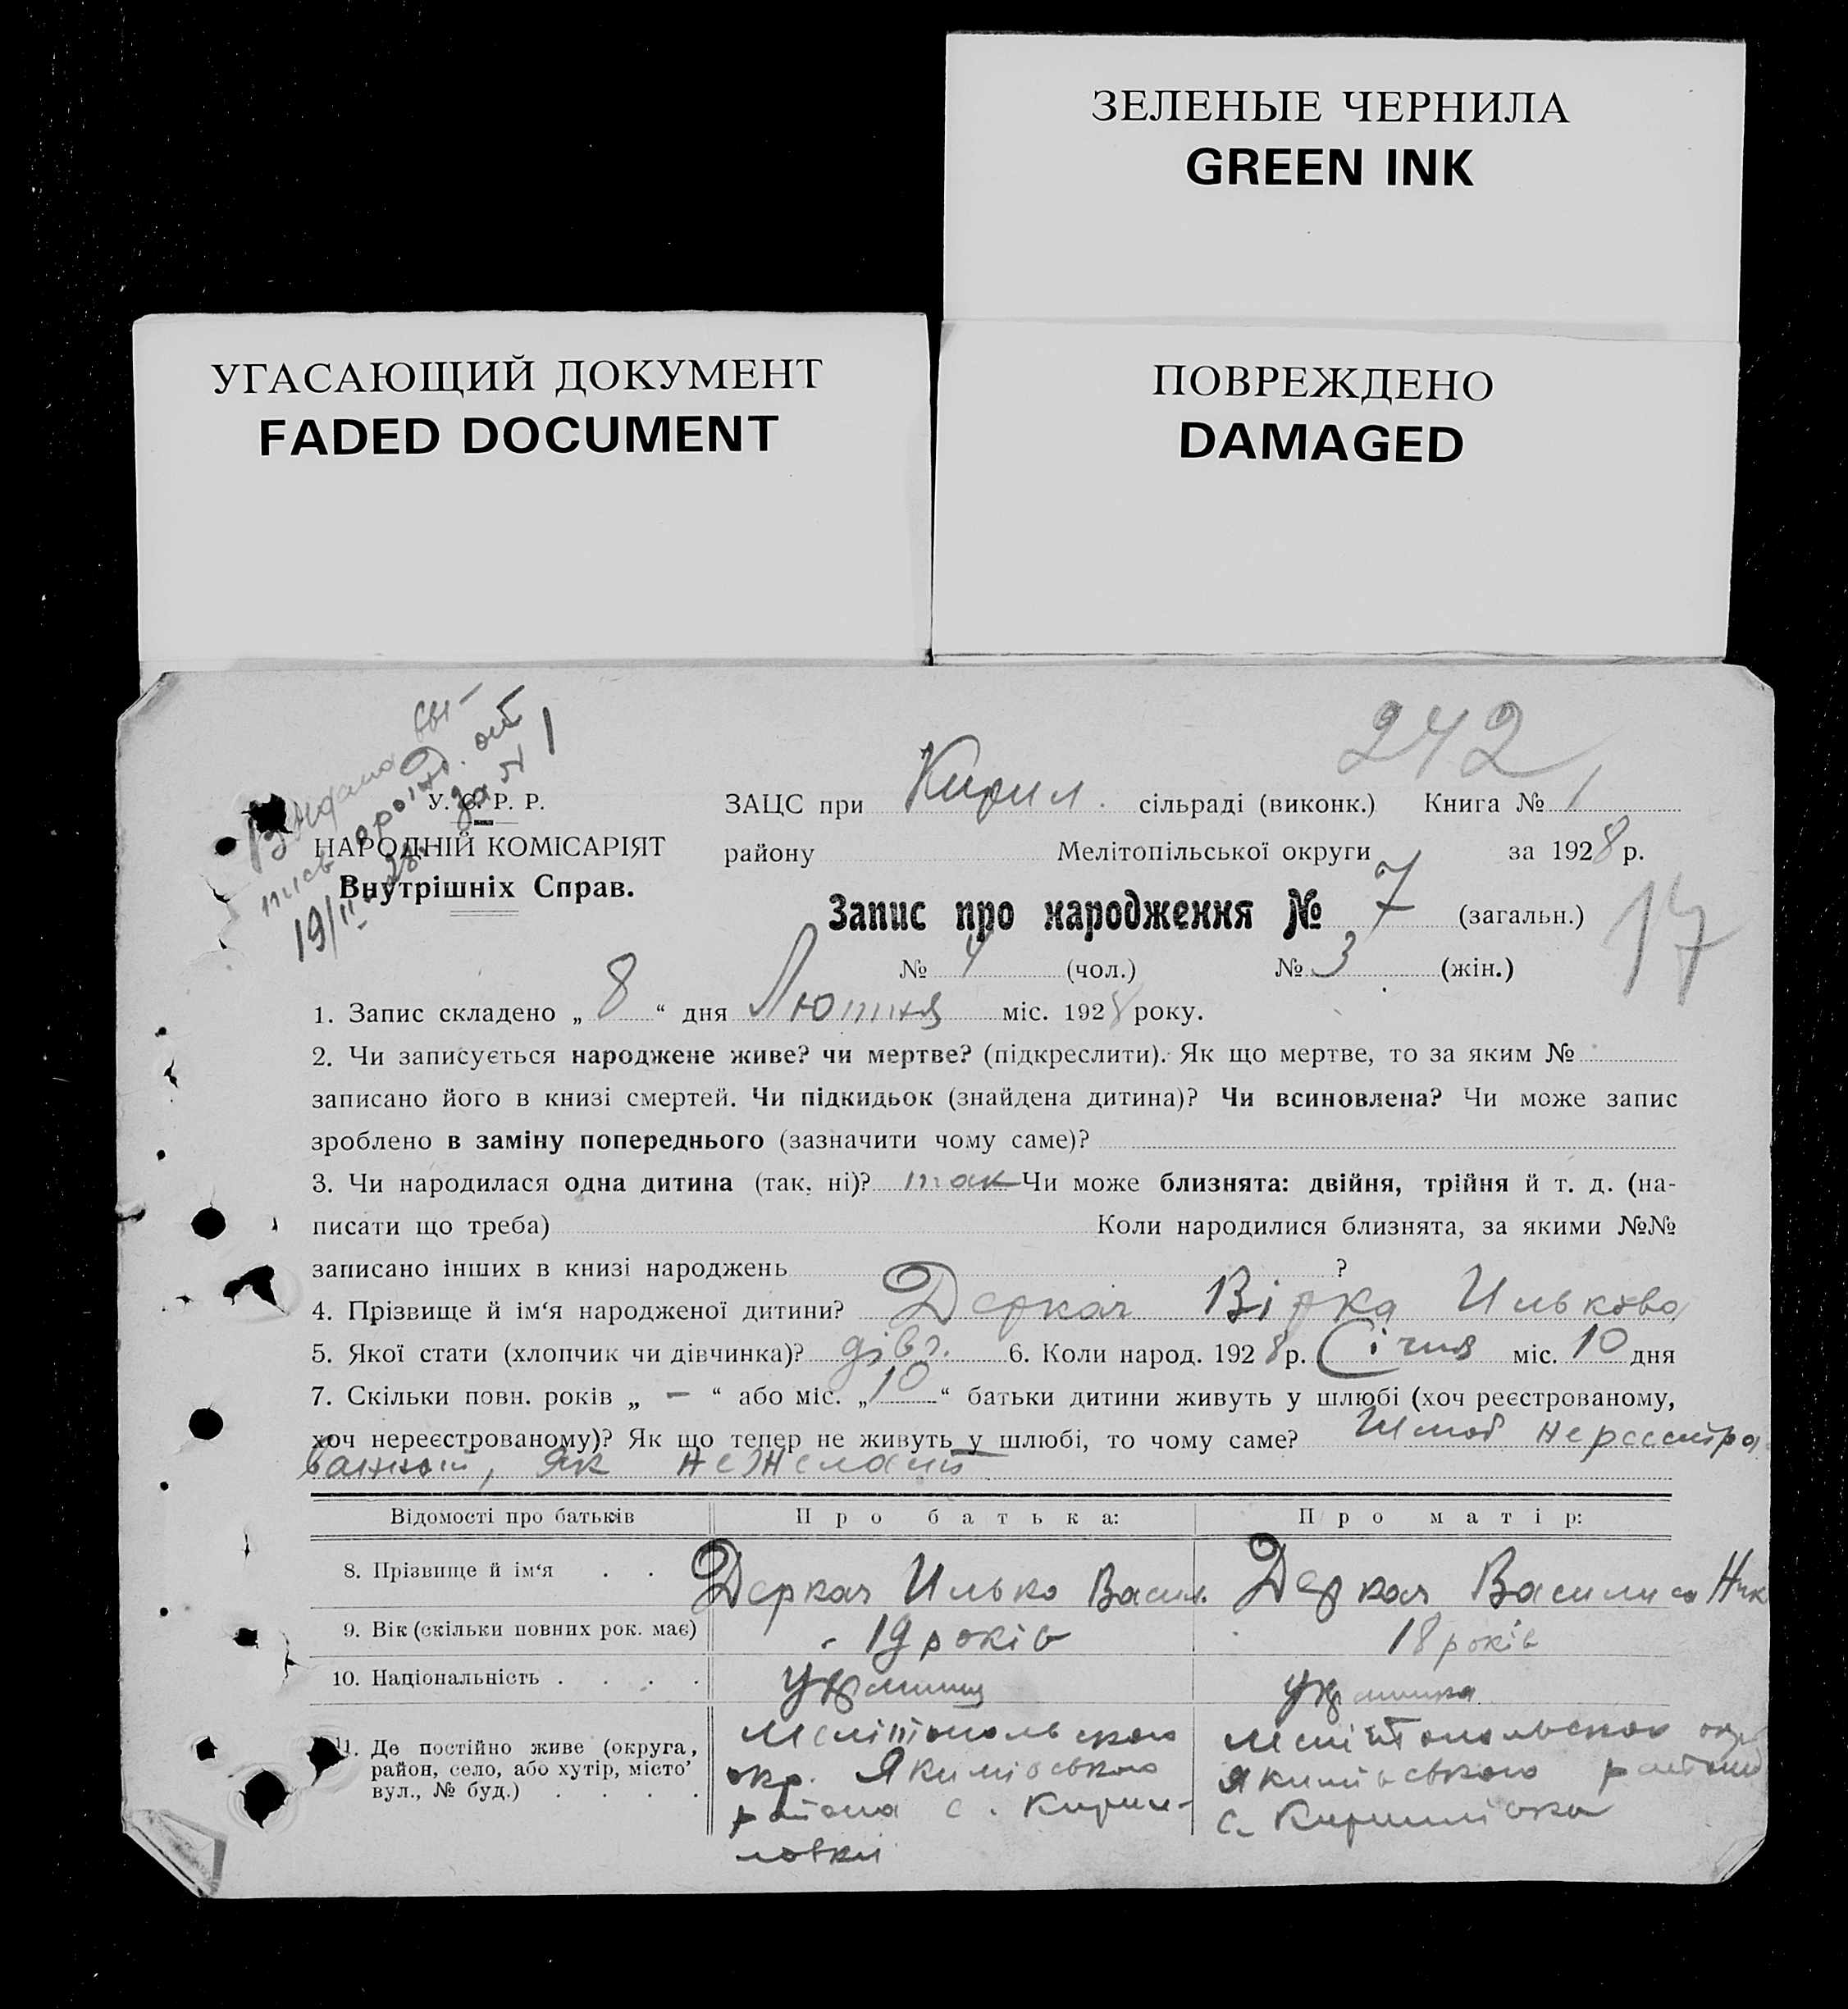 ЗЕЛЕНЫЕ ЧЕРНИЛА
GREEN INK
УГАСАЮЩИЙ ДОКУМЕНТ
FADED DOCUMENT
ПОВРЕЖДЕНО
DAMAGED
242
Видана ви-
пись про
за № 1
19/II 28.
У. С. Р. Р.
НАРОДНІЙ КОМІСАРІЯТ
Внутрішніх Справ.
ЗАЦС при Кирил. сільраді (виконк.) Книга № 1
району Мелітопільської округи за 1928 р.
Запис про народження № 7 (загальн.)
17
№ 4 (чол.) № 3 (жін.)
1. Запис складено „ 8 “ дня Лютня міс. 1928 року.
2. Чи записується народжене живе? чи мертве? (підкреслити). Як що мертве, то за яким №
записано його в книзі смертей. Чи підкидьок (знайдена дитина)? Чи всиновлена? Чи може запис
зроблено в заміну попереднього (зазначити чому саме)?
3. Чи народилася одна дитина (так, ні)? так Чи може близнята: двійня, трійня й т. д. (на-
писати що треба) Коли народилися близнята, за якими №№
записано інших в книзі народжень ?
4. Прізвище й ім‘я народженої дитини? Деркач Вірка Илькова
5. Якої стати (хлопчик чи дівчинка)? дівч. 6. Коли народ. 1928 р. Січня міс. 10 дня
7. Скільки повн. років „ — “ або міс. „ 10 “ батьки дитини живуть у шлюбі (хоч реєстрованому,
хоч нереєстрованому)? Як що тепер не живуть у шлюбі, то чому саме? Шлюб
Відомості про батьків
Про батька:
Про матір:
8. Прізвище й ім‘я . .
Деркач Илько Васил.
Деркач Василиса Ник
9. Вік (скільки повних рок. має)
19 років
18 років
10. Національність . . . .
українец
українка
11. Де постійно живе (округа,
район, село, або хутір, місто’
вул., № буд.) . . . .
Мелітопольского
окр. Якимівського
района с. Кирил-
ловки
Мелітопольского окр
Якимівського района
с. Кирилівка